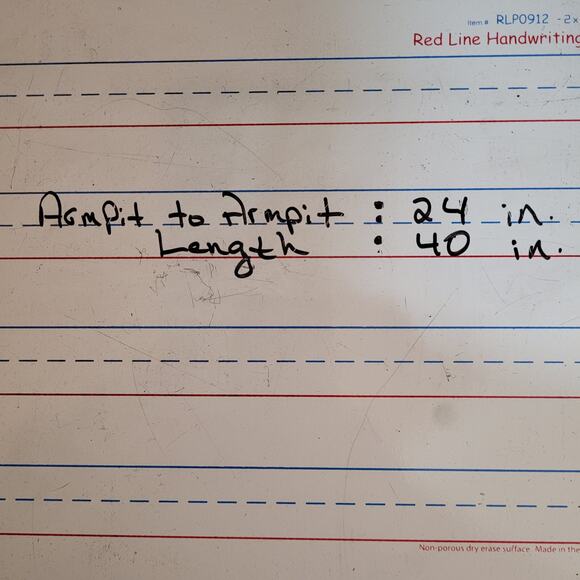 Item # RLP0912 - 2x
Red Line Handwriting
Armpit to Armpit : 24 in.
Length : 40 in.
Non-porous dry erase surface. Made in the